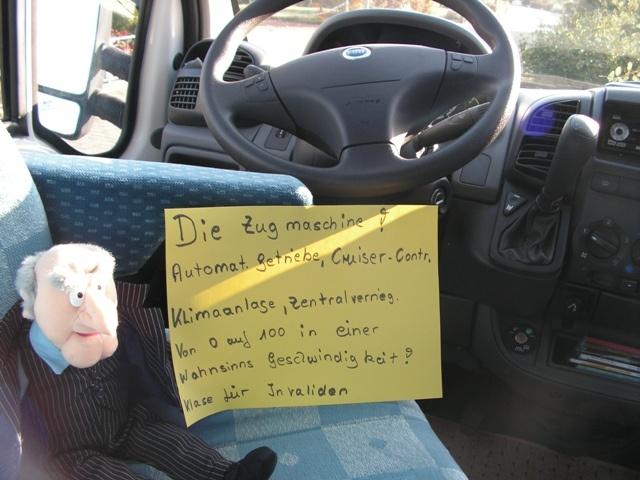 Die Zugmaschine ?
Automat. getriebe, Cruiser-Contr.
Klimaanlase, Zentralverrieg.
Von 0 auf 100 in einer
Wahnsinns Geschwindigkeit?
Klase für Invaliden
FIAT